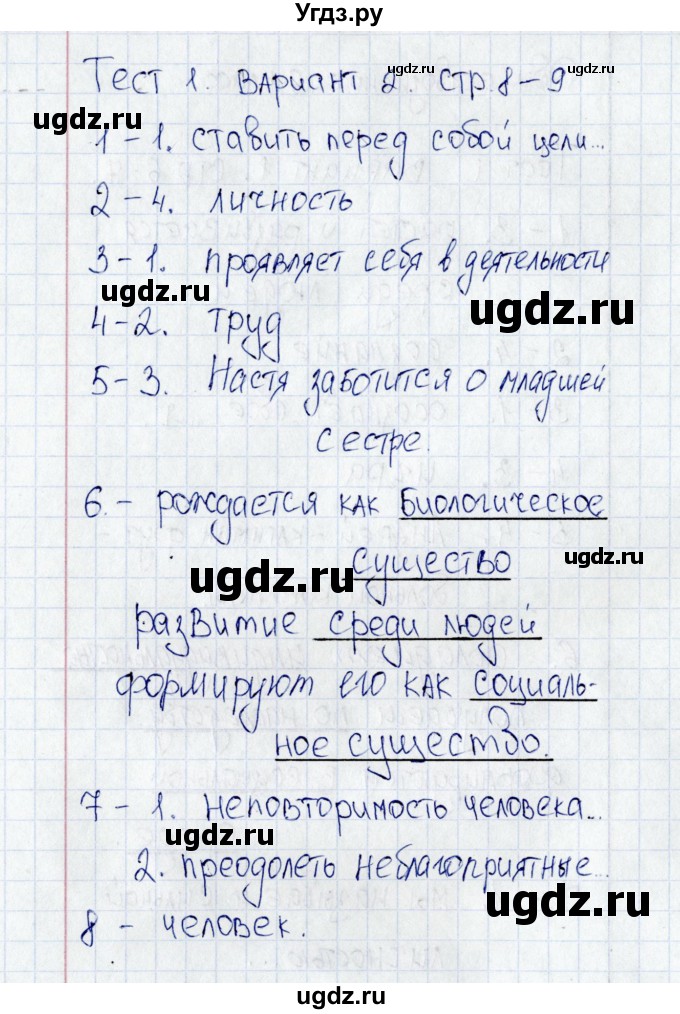 Угдз.ру
Тест 1. Вариант 2. стр. 8 - 9
ugdz.ru
ugdz.ru
ugdz.ru
1 - 1. ставить перед собой цели...
2 - 4. личность
3 - 1. проявляет себя в деятельности
ugdz.ru
ugdz.ru
4 - 2. труд
5 - 3. Настя заботится о младшей
сестре.
6. - рождается как биологическое
существо
ugdz.ru
ugdz.ru
развитие среди людей
формируют его как социаль-
ное существо.
7 - 1. неповторимость человека...
ugdz.ru
2. преодолеть неблагоприятные...
ugdz.ru
8 - человек.
ugdz.ru